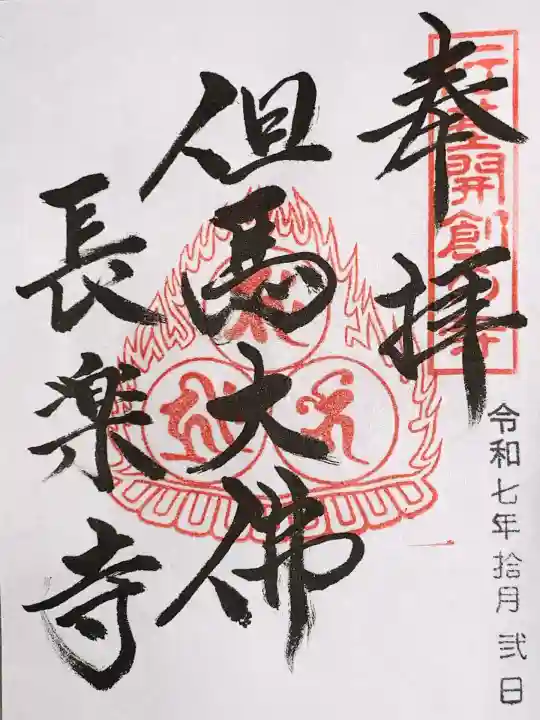 奉拝
令和七年拾月弐日
但馬大佛
長楽寺